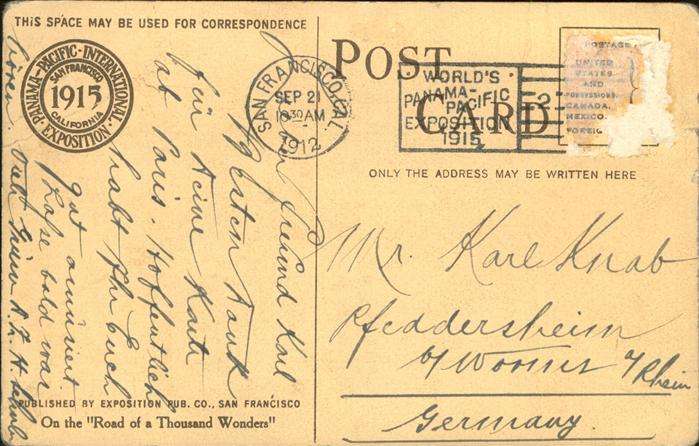 THIS SPACE MAY BE USED FOR CORRESPONDENCE
PANAMA-PACIFIC-INTERNATIONAL
SAN FRANCISCO
1915
CALIFORNIA
EXPOSITION
Freund Karl
Besten Dank
für Deine Karte
ab Paris. Hoffentlich
habt Ihr Euch
gut amüsiert
bald
PUBLISHED BY EXPOSITION PUB. CO., SAN FRANCISCO
On the "Road of a Thousand Wonders"
SAN FRANCISCO, CAL.
SEP 21
10 30 AM
1912
WORLD'S
PANAMA-
PACIFIC
EXPOSITION
1915
POST CARD
POSTAGE
UNITED
STATES
AND
POSSESSIONS,
CANADA,
MEXICO.
FOREIG
ONLY THE ADDRESS MAY BE WRITTEN HERE
Mr. Karl Knab
Pfeddersheim
b/ Worms a/Rhein
Germany.